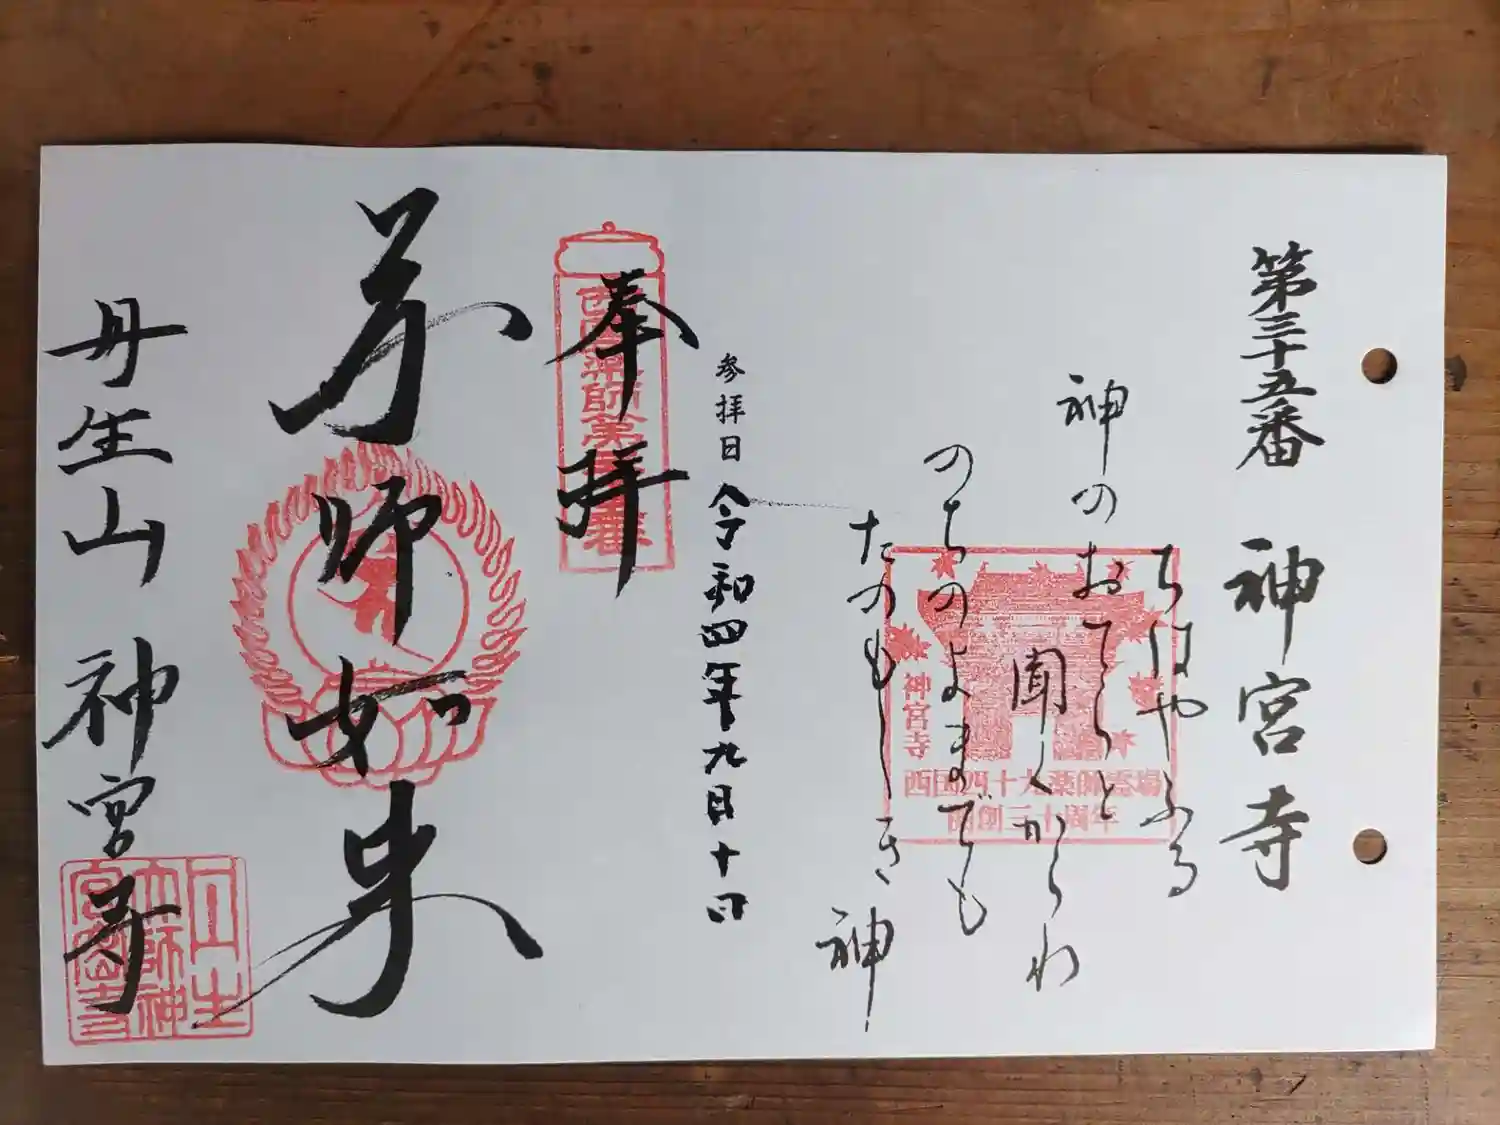 第三十五番 神宮寺
ちはやふる
神のおてらと
聞くからわ
のちのよまでも
たのもしき
神
神宮寺
西国四十九薬師霊場
開創三十周年
参拝日 令和四年九月十日
奉拝
西国薬師第三十五番
薬師如来
丹生山 神宮寺